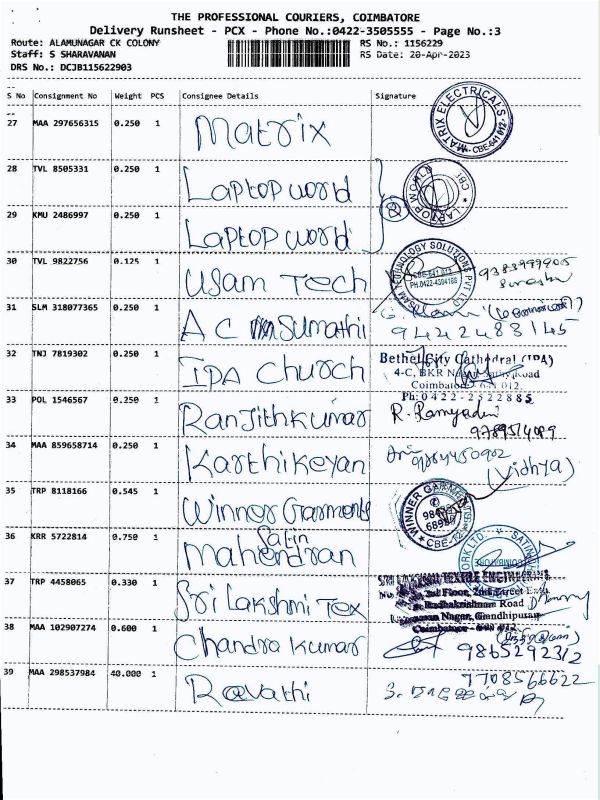 THE PROFESSIONAL COURIERS, COIMBATORE
Delivery Runsheet - PCX - Phone No.:0422-3505555 - Page No.:3
Route: ALAMUNAGAR CK COLONY
Staff: S SHARAVANAN
DRS No.: DCJB115622903
RS No.: 1156229
RS Date: 20-Apr-2023
S No Consignment No Weight PCS Consignee Details Signature
27 MAA 297656315 0.250 1 Matrix
MATRIX ELECTRICALS CBE-641 012
28 TVL 8505331 0.250 1 Laptop world
LAPTOP WORLD CBE
29 KMU 2486997 0.250 1 Laptop world
30 TVL 9822756 0.125 1 Usam Tech
USAM TECHNOLOGY SOLUTIONS PVT LTD
CBE-641 012
PH:0422-4504186
31 SLM 318077365 0.250 1 A C Sumathi
9442488145
32 TNJ 7819302 0.250 1 IPA Church
Bethel City Cathedral (IPA)
4-C, BKR Nagar, Road
Coimbatore 641 012.
Ph: 0422-2522885
33 POL 1546567 0.250 1 Ranjithkumar
R. Ramyadevi
34 MAA 859658714 0.250 1 Karthikeyan
(Vidhya)
35 TRP 8118166 0.545 1 Winner Garments
WINNER GARMENTS
CBE-12
36 KRR 5722814 0.750 1 Satin
Mahendran
37 TRP 4458065 0.330 1 Sri Lakshmi Tex
3rd Floor, 2nd Street Extn.
Radhakrishnan Road
Nagar, Gandhipuram
Coimbatore - 641 012
38 MAA 102907274 0.600 1 Chandra Kumar
9865292312
39 MAA 298537984 40.000 1 Revathi
7708566622